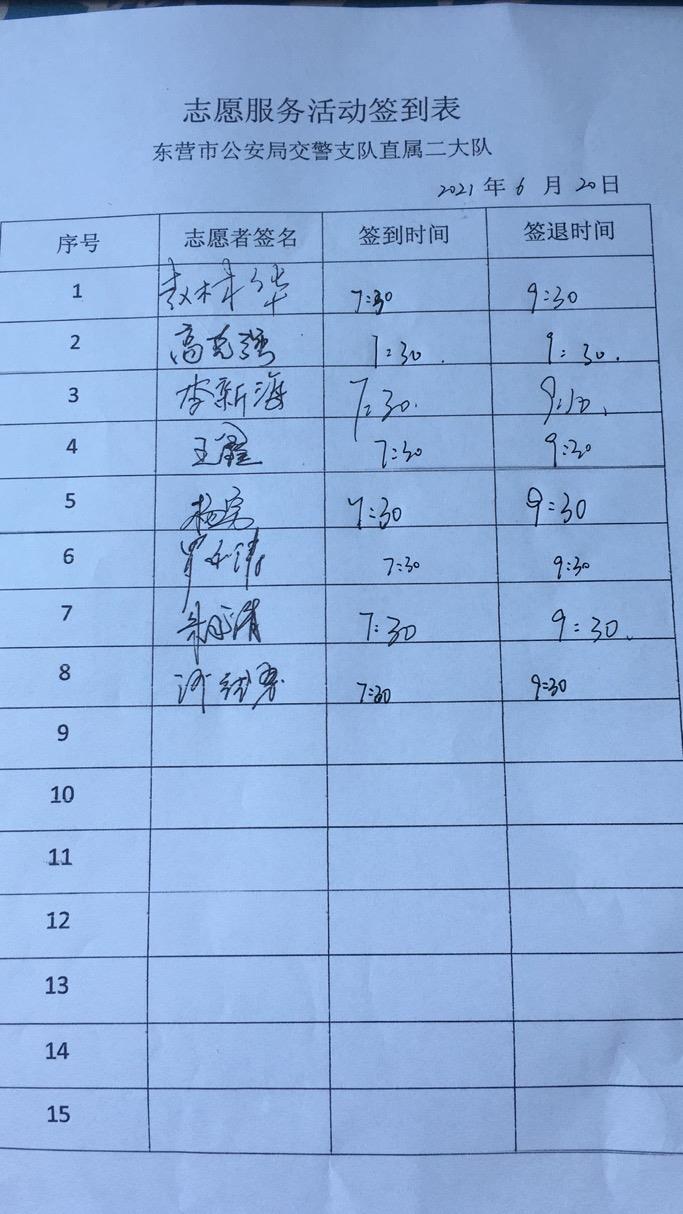 志愿服务活动签到表
东营市公安局交警支队直属二大队
2021 年 6 月 20日
序号 志愿者签名 签到时间 签退时间
1 赵林华 7:30 9:30
2 高克强 7:30. 9:30.
3 李新海 7:30.
4 王 7:30 9:30
5 杨 7:30 9:30
6 7:30 9:30
7 7:30 9:30.
8 许 7:30 9:30
9
10
11
12
13
14
15